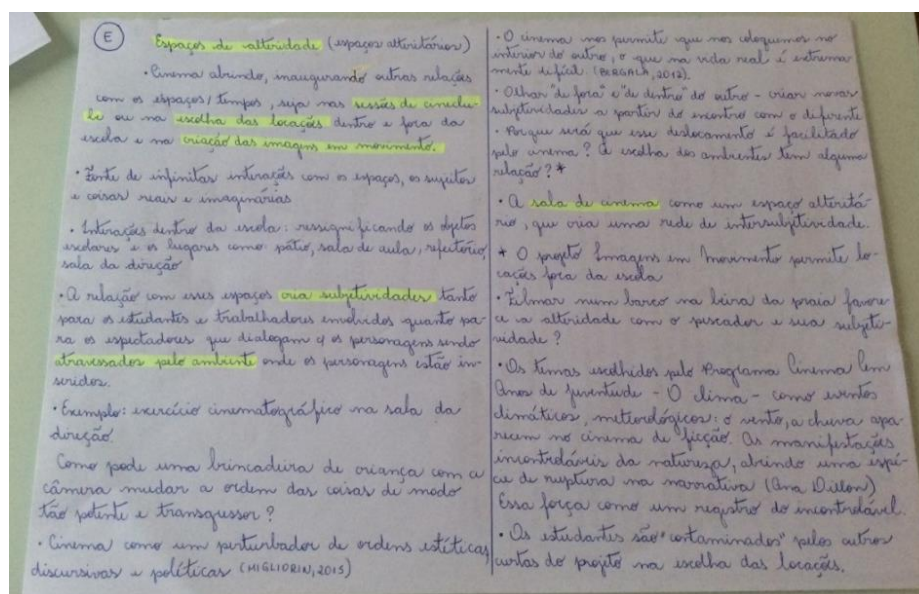 E
Espaços de alteridade (espaços alteritários)
· Cinema abrindo, inaugurando outras relações
com os espaços/tempos, seja nas sessões de cineclu-
be ou na escolha das locações dentro e fora da
escola e na criação das imagens em movimento.
· Fonte de infinitas interações com os espaços, os sujeitos
e coisas reais e imaginárias
· Interações dentro da escola: ressignificando os objetos
escolares e os lugares como pátio, sala de aula, refeitório,
sala da direção
· A relação com esses espaços cria subjetividades tanto
para os estudantes e trabalhadores envolvidos quanto pa-
ra os espectadores que dialogam c/ os personagens sendo
atravessados pelo ambiente onde os personagens estão in-
seridos.
· Exemplo: exercício cinematográfico na sala da
direção.
Como pode uma brincadeira de criança com a
câmera mudar a ordem das coisas de modo
tão potente e transgressor?
· Cinema como um perturbador de ordens estéticas,
discursivas e políticas (MIGLIORIN, 2015)
· O cinema nos permite que nos coloquemos no
interior do outro, o que na vida real é extrema
mente difícil. (BERGALA, 2012).
· Olhar "de fora" e "de dentro" do outro - criar novas
subjetividades a partir do encontro com o diferente
· Por que será que esse deslocamento é facilitado
pelo cinema? A escolha dos ambientes tem alguma
relação? *
· A sala de cinema como um espaço alteritá-
rio, que cria uma rede de intersubjetividade.
* O projeto Imagens em Movimento permite lo-
cações fora da escola
· Filmar num barco na beira da praia favore-
ce a alteridade com o pescador e sua subjeti-
vidade?
· Os temas escolhidos pelo Programa Cinema Cem
Anos de Juventude - O clima - como eventos
climáticos, meteorológicos: o vento, a chuva apa-
recem no cinema de ficção. As manifestações
incontroláveis da natureza, abrindo uma espé-
cie de ruptura na narrativa (Ana Dillon)
Essa força como um registro do incontrolável.
· Os estudantes são "contaminados" pelos outros
curtas do projeto na escolha das locações.